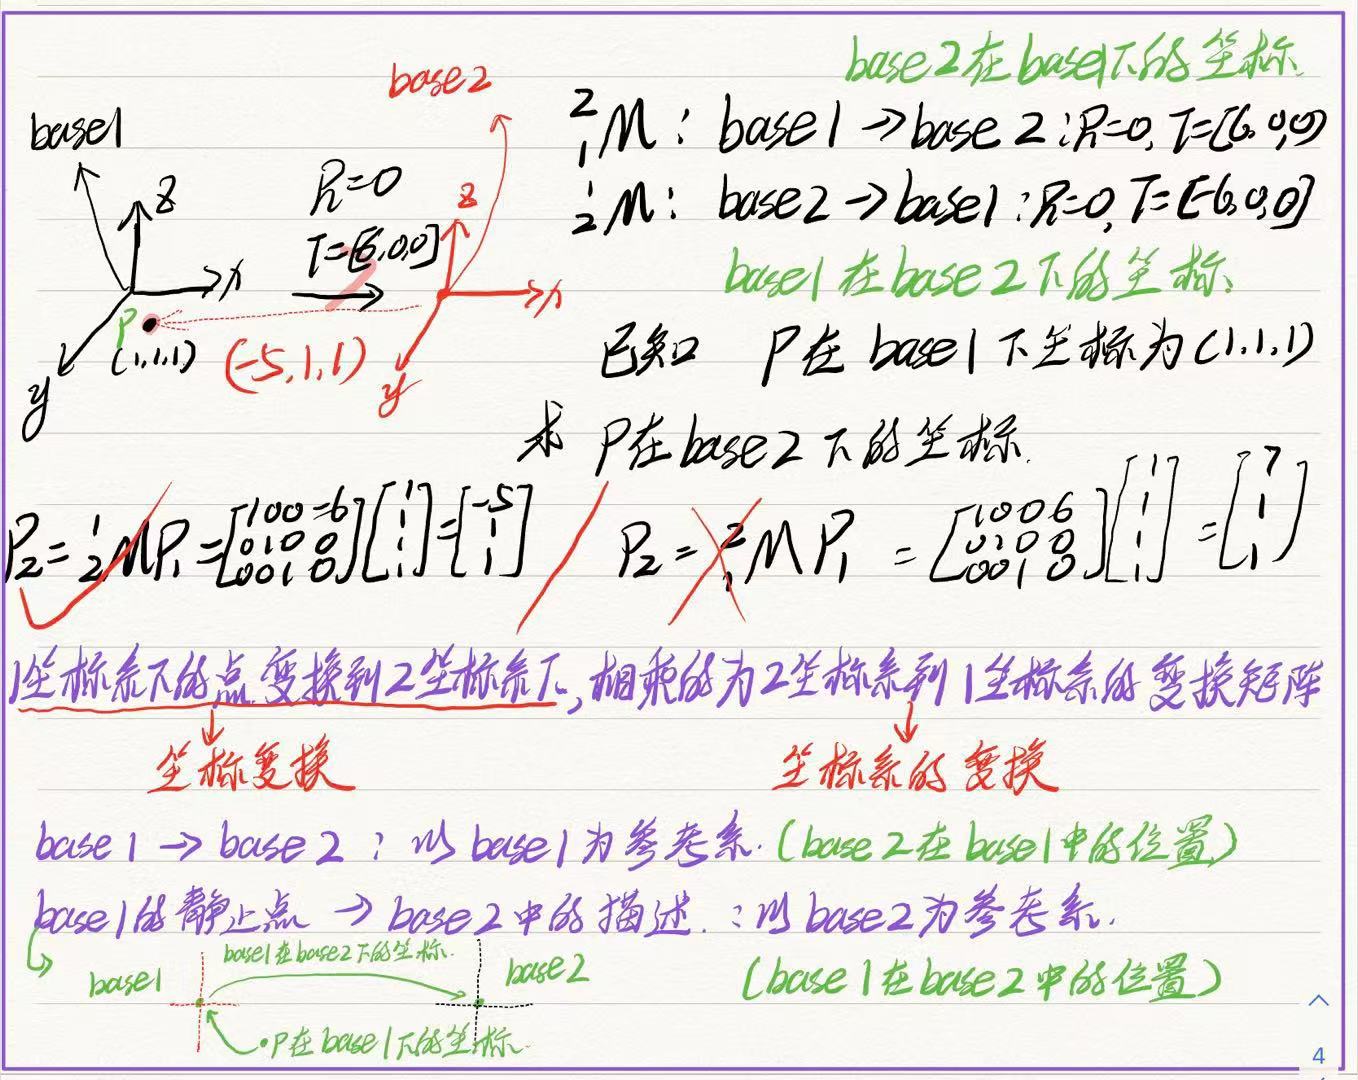 base2在base1下的坐标
base2
²₁M: base1→base2:R=0, T=[6,0,0)
base1
R=0
z
z
²₁M: base2→base1:R=0, T=[-6,0,0]
T=[6,0,0]
x
x
base1在base2下的坐标
P
(1,1,1)
(-5,1,1)
y
y
已知 P在base1下坐标为(1.1.1)
求 P在base2下的坐标.
P₂=¹₂MP₁=[100-6 0100 0010][1 1 1 1]=[-5 1 1]
P₂=²₁MP₁=[1006 0100 0010][1 1 1]=[7 1 1]
1坐标系下的点变换到2坐标系下,相乘的为2坐标系到1坐标系的变换矩阵
坐标变换
坐标系的变换
base1→base2:以base1为参考系.(base2在base1中的位置)
base1的静止点→base2中的描述.:以base2为参考系.
base1在base2下的坐标.
base1
base2
(base1在base2中的位置)
•P在base1下的坐标.
4